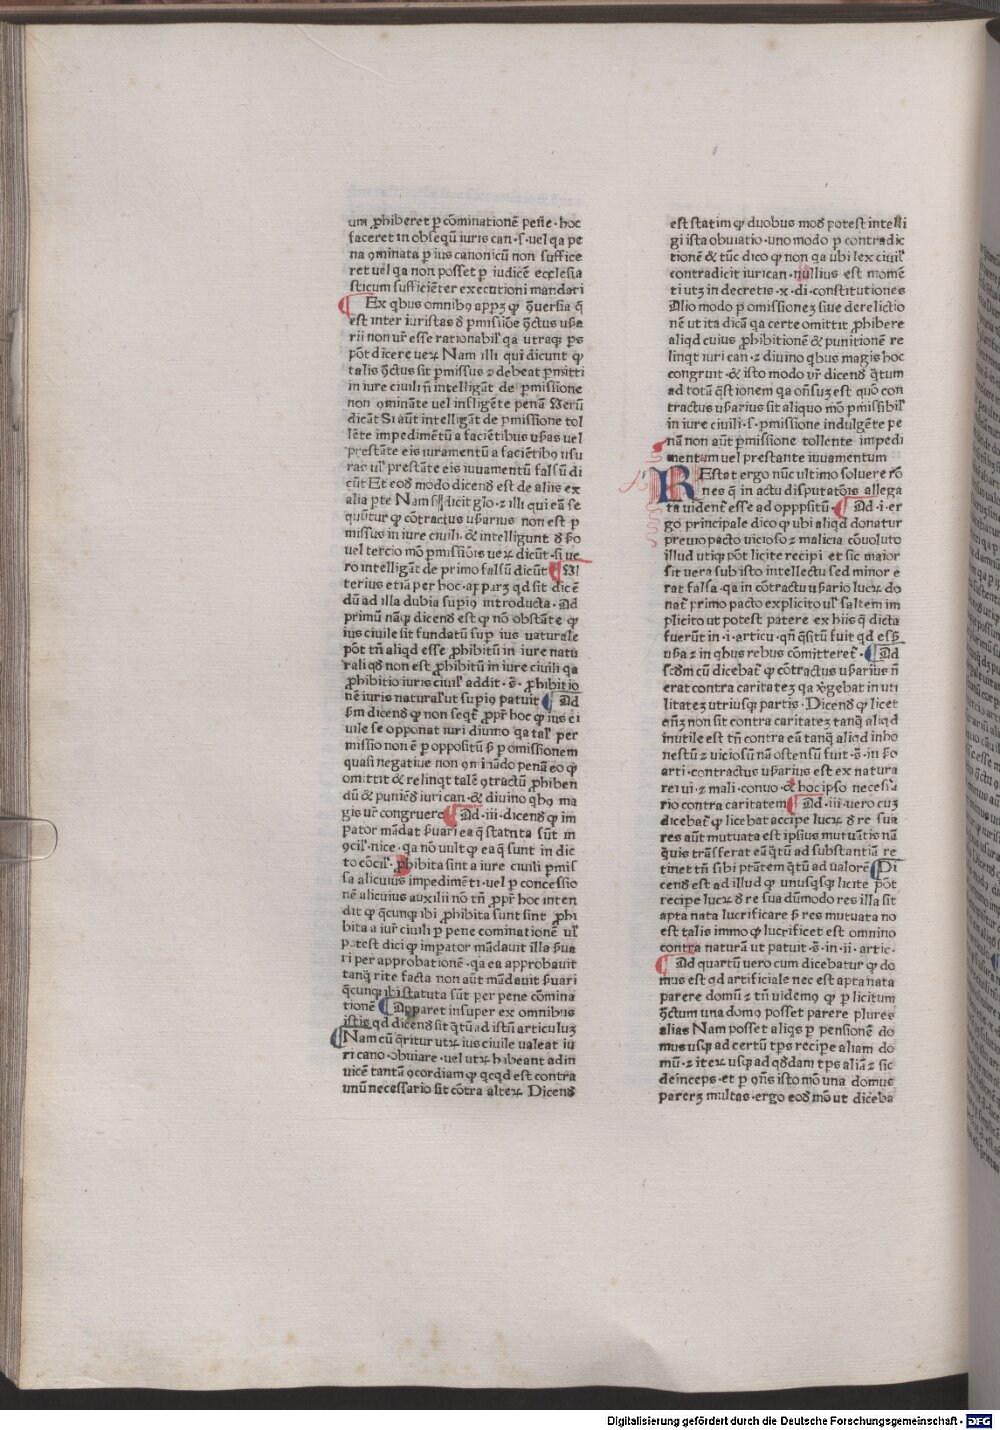 um ꝓhiberet p cōminationē pene· hoc
faceret in obseqū iuris can· s· uel qa pe
na ꝯminata p ius canonicū non suffice
ret uel qa non posset p iudicē ecclesia
sticum sufficiēter executioni mandari
Ex qbus omnibꝰ appꝫ ꝙ ꝗ̄uersia q̄
est inter iuristas ꝺ pmissiōe ꝗ̄ctus usa
rii non ur̄ esse rationabil' qa utraqꝫ ps
pōt dicere ueꝝ Nam illi qui dicunt ꝙ
talis ꝗ̄ctus sit pmissus ⁊ debeat pmitti
in iure ciuili n̄ intelligāt de pmissione
non ꝯmināte uel infligēte penā Verū
dicāt Si aūt intelligāt de pmissione tol
lēte impedimētū a faciētibus usas uel
prestāte eis iuramentū a faciētibꝰ usu
ras ul' prestāte eis iuuamentū falsū di
cūt Et eoꝺ modo dicenꝺ est de aliis ex
alia pte Nam s licit glo· ⁊ illi qui eā se
quūtur ꝙ cōtractus usarius non est p
missus in iure ciuili· & intelligunt ꝺ so
uel tercio mō pmissiōis ueꝝ dicūt· si ue
ro intelligāt de primo falsū dicūt Vl
terius etiā per hoc· ap parꝫ qd sit dicē
dū ad illa dubia supiꝰ introducta· Ad
primū nāqꝫ dicenꝺ est ꝙ nō obstāte ꝙ
ius ciuile sit fundatū sup ius naturale
pōt tn̄ aliqd esse ꝓhibitū in iure natu
rali qꝺ non est ꝓhibitū in iure ciuili qa
ꝓhibitio iuris ciuil' addit· s̄· ꝓhibitio
nē iuris natural' ut supiꝰ patuit Ad
sm dicenꝺ ꝙ non seqt' ꝓpr̄ hoc ꝙ ius ci
uile se opponat iuri diuino qa tal' per
missio non ē p oppositū s p omissionem
quasi negatiue non ꝯminādo penā eo ꝙ
omittit & relinqt talē ꝯtractū ꝓhiben
dū & punienꝺ iuri can· & diuino qbꝰ ma
gis ur̄ congruere Ad· iii· dicenꝺ ꝙ im
pator mādat suari ea q̄ statuta sūt in
ꝯcil' nice· qa nō uult ꝙ ea q̄ sunt in dic
to cōcil' ꝓhibita sint a iure ciuili pmis
sa alicuius impedimēti· uel p concessio
nē alicuius auxilii nō tn̄ ꝓpr̄ hoc inten
dit ꝙ q̄cunqꝫ ibi ꝓhibita sunt sint ꝓhi
bita a iur̄ ciuili p pene cominationē ul'
potest dici ꝙ impator mādauit illa sua
ri per approbationē· qa ea approbauit
tanq̄ rite facta non aūt mādauit suari
q̄cunqꝫ ibi statuta sūt per pene cōmina
tionē Apparet insuper ex omnibus
istis qd dicenꝺ sit q̄tū ad istū articuluꝫ
Nam cū q̄ritur utꝝ ius ciuile ualeat iu
ri cano· obuiare· uel utꝝ habeant adin
uicē tantā ꝯcordiam ꝙ qcqd est contra
unū necessario sit cōtra alteꝝ Dicenꝺ
est statim ꝙ duobus moꝺ potest intelli
gi ista obuiatio· uno modo p contradic
tionē & tūc dico ꝙ non qa ubi lex ciuil'
contradicit iuri can· nullius est momē
ti utꝫ in decretis· x· di· constitutiones
Alio modo p omissioneꝫ siue derelictio
nē ut ita dicā qa certe omittit ꝓhibere
aliqd cuius ꝓhibitionē & punitionē re
linqt iuri can· ⁊ diuino qbus magis hoc
congruit· & isto modo ur̄ dicenꝺ q̄tum
ad totā q̄stionem qa on̄suꝫ est quō con
tractus usarius sit aliquo mō pmissibil'
in iure ciuili· s· pmissione indulgēte pe
nā non aūt pmissione tollente impedi
mentum uel prestante iuuamentum
REstat ergo nūc ultimo soluere rō
nes q̄ in actu disputatōis allega
ta uident' esse ad oppositū· Ad· i· er
go principale dico ꝙ ubi aliqd donatur
preuio pacto uicioso ⁊ malicia cōuoluto
illud utiqꝫ pōt licite recipi et sic maior
sit uera sub isto intellectu sed minor e
rat falsa· qa in cōtractu usario lucꝝ do
nat' primo pacto explicito ul' saltem im
plicito ut potest patere ex hiis q̄ dicta
fuerūt in· i· articu· qn̄ q̄situ fuit qd esset
usa ⁊ in qbus rebus cōmitteret'· Ad
scdm cū dicebat' ꝙ cōtractus usarius n̄
erat contra caritateꝫ qa ꝟgebat in uti
litateꝫ utriusqꝫ partis· Dicenꝺ ꝙ licet
en̄ꝫ non sit contra caritateꝫ tanq̄ aliqd
inutile est tn̄ contra eā tanq̄ aliqd inho
nestū ⁊ uiciosū nā ostensū fuit· s̄· in so
arti· contractus usarius est ex natura
rei ui· ⁊ mali· conuo· & hoc ipso necessa
rio contra caritatem Ad· iii· uero cuꝫ
dicebat' ꝙ licebat accipe lucꝝ ꝺ re sua
res aūt mutuata est ipsius mutuātis nā
q̄uis trāsferat eā q̄tū ad substantiā re
tinet tn̄ sibi ptātem q̄tū ad ualorē Di
cenꝺ est ad illud ꝙ unusqsqꝫ licite pōt
recipe lucꝝ ꝺ re sua dūmodo res illa sit
apta nata lucrificare s res mutuata no
est talis immo ꝙ lucrificet est omnino
contra naturā ut patuit· s̄· in· ii· artic·
Ad quartū uero cum dicebatur ꝙ do
mus est qd artificiale nec est apta nata
parere domū ⁊ tn̄ uidemꝰ ꝙ p licitum
ꝗ̄ctum una domꝰ posset parere plures
alias Nam posset aliqs p pensionē do
mus usqꝫ ad certū tps recipe aliam do
mū· ⁊ iteꝝ usqꝫ ad qꝺdam tps aliā ⁊ sic
deinceps· et p ꝯn̄s isto mō una domus
pareret multas· ergo eoꝺ mō ut diceba
Digitalisierung gefördert durch die Deutsche Forschungsgemeinschaft - DFG